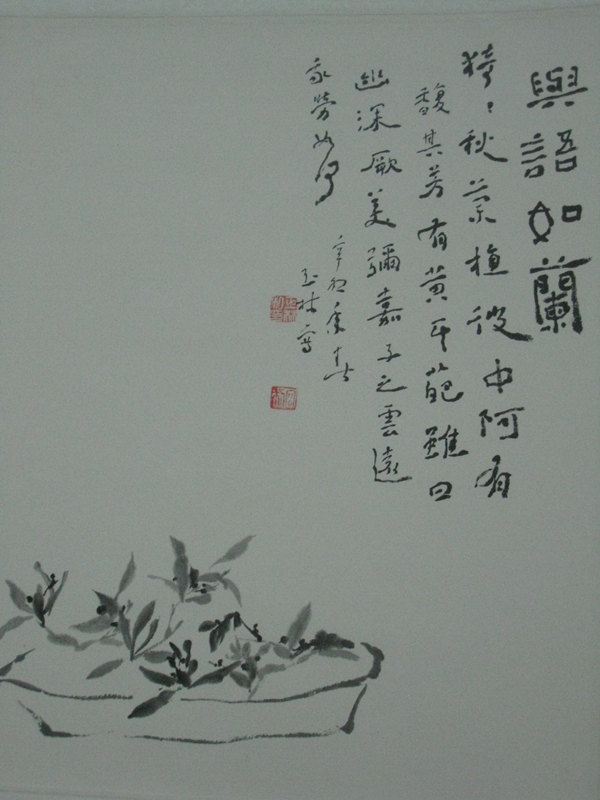 與語如蘭
猗〻秋蘭植彼中阿有
馥其芳有黃其葩雖曰
幽深厥美彌嘉子之雲遠
我勞如何
辛卯季春
玉林寫